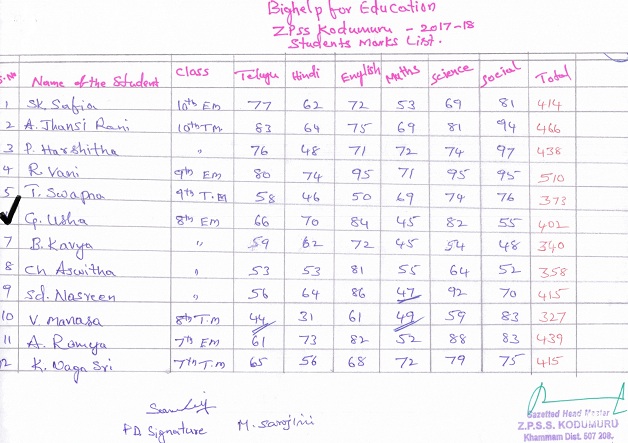 Bighelp for Education
ZPSS Kodumuru - 2017-18
Students Marks List.
S.No Name of the Student Class Telugu Hindi English Maths Science Social Total
1 Sk Safia 10th EM 77 62 72 53 69 81 414
2 A. Jhansi Rani 10th T.M 83 64 75 69 81 94 466
3 P. Harshitha " 76 48 71 72 74 97 438
4 R. Vani 9th EM 80 74 95 71 95 95 510
5 T. Swapna 9th T.M 58 46 50 69 74 76 373
G. Usha 8th EM 66 70 84 45 82 55 402
7 B. Kavya " 59 62 72 45 54 48 340
8 Ch Aswitha " 53 53 81 55 64 52 358
9 Sd. Nasreen " 56 64 86 47 92 70 415
10 V. Manasa 8th T.M 44 31 61 49 59 83 327
11 A. Ramya 7th EM 61 73 82 52 88 83 439
12 K. Naga Sri 7th T.M 65 56 68 72 79 75 415
PD Signature M. Sarojini
Gazetted Head Master
Z.P.S.S. KODUMURU
Khammam Dist. 507 208.